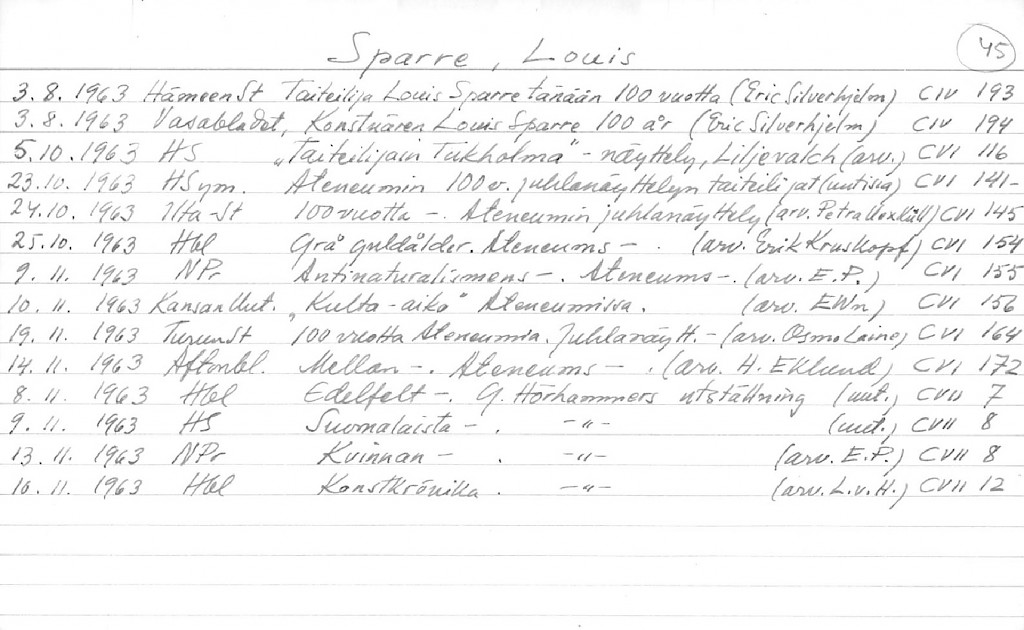 Sparre, Louis
45
3.8.1963 HämeenSt Taiteilija Louis Sparre tänään 100 vuotta (Eric Silverhjelm) CIV 193
3.8.1963 Vasabladet, Konstnären Louis Sparre 100 år (Eric Silverhjelm) CIV 194
5.10.1963 HS „Taiteilijain Tukholma" - näyttely, Liljevalch (arv.) CVI 116
23.10.1963 HSym. Ateneumin 100v. juhlanäyttelyn taiteilijat (uutisia) CVI 141-
24.10.1963 Ilta-St 100 vuotta -. Ateneumin juhlanäyttely (arv. Petra Uexküll) CVI 145
25.10.1963 Hbl Grå guldålder. Ateneums - . (arv. Erik Kruskopf) CVI 154
9.11.1963 NPr Antinaturalismens -. Ateneums -. (arv. E.P.) CVI 155
10.11.1963 KansanUut. „Kulta-aika" Ateneumissa. (arv. EWn) CVI 156
19.11.1963 TurunSt 100 vuotta Ateneumia. Juhlanäytt. - (arv. Osmo Laine) CVI 164
14.11.1963 Aftonbl. Mellan -. Ateneums - . (arv. H. Eklund) CVI 172
8.11.1963 Hbl Edelfelt -. G. Hörhammers utställning (uut.) CVII 7
9.11.1963 HS Suomalaista - . -"- (uut.) CVII 8
13.11.1963 NPr Kvinnan - . -"- (arv. E.P.) CVII 8
10.11.1963 Hbl Konstkrönika. -"- (arv. L.v.H.) CVII 12